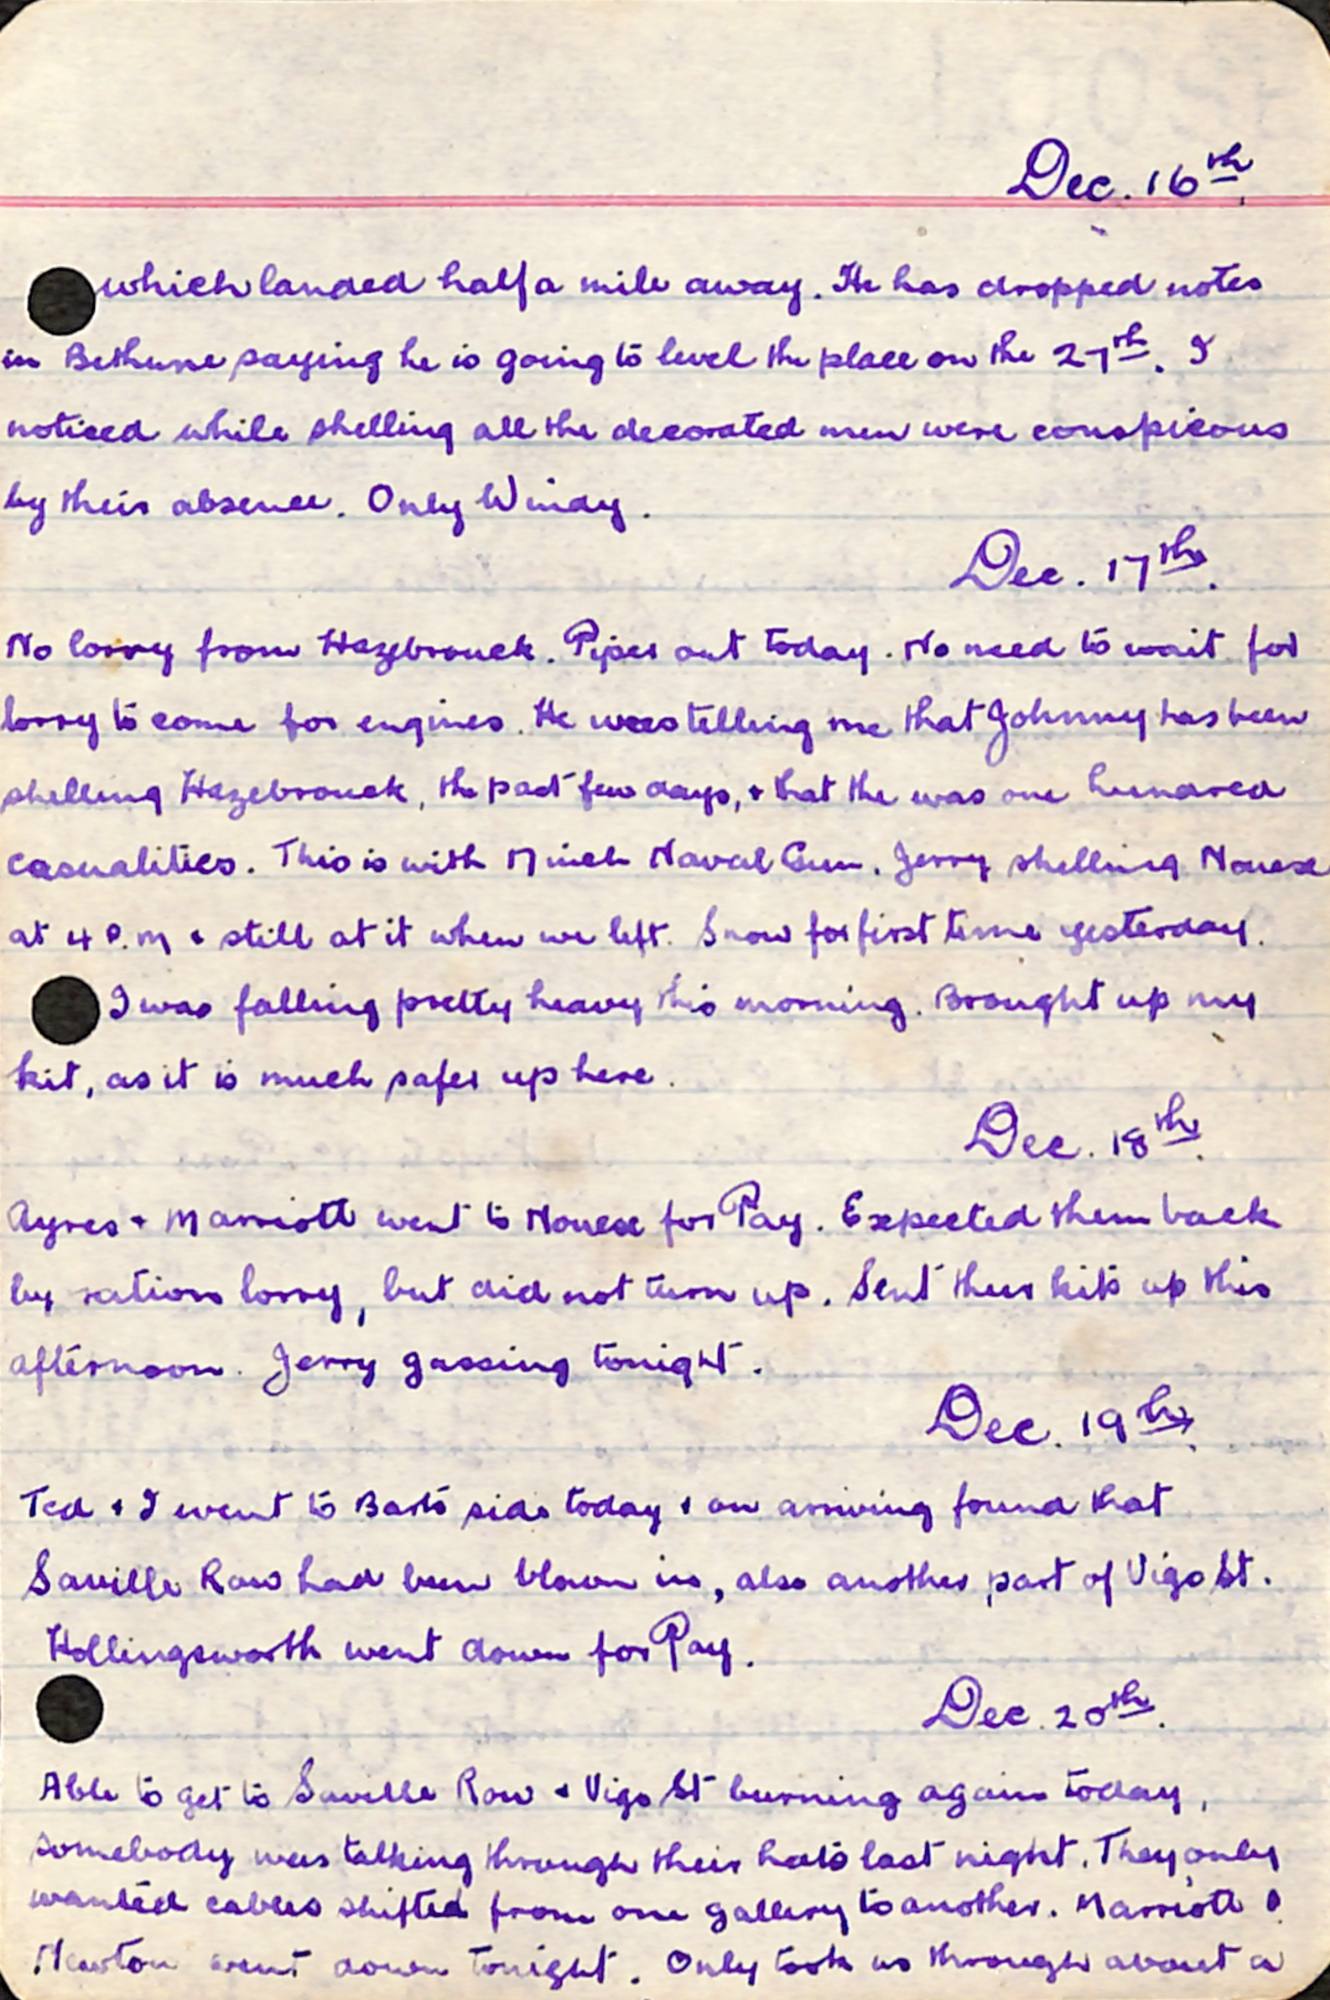 Dec. 16th.
which landed half a mile away. He has dropped notes
in Bethune saying he is going to level the place on the 27th. I
noticed while shelling all the decorated men were conspicous
by their absence. Only Windy.
Dec. 17th.
No lorry from Hazebrouck. Piper out today. No need to wait for
lorry to come for engines. He was telling me that Johnny has been
shelling Hazebrouck, the past few days, & that the was one hundred
casualities. This is with 17 inch Naval Gun. Jerry shelling Noeux
at 4 P.M & still at it when we left. Snow for first time yesterday.
I was falling pretty heavy this morning. Brought up my
kit, as it is much safer up here.
Dec. 18th.
Ayres & Marriott went to Noeux for Pay. Expected them back
by ration lorry, but did not turn up. Sent their kits up this
afternoon. Jerry gassing tonight.
Dec. 19th.
Ted & I went to Barts side today & on arriving found that
Saville Row had been blown in, also another part of Vigo St.
Hollingsworth went down for Pay.
Dec. 20th.
Able to get to Saville Row & Vigo St burning again today,
somebody was talking through their hats last night. They only
wanted cables shifted from one gallery to another. Marriott &
Newton went down tonight. Only took us through about a